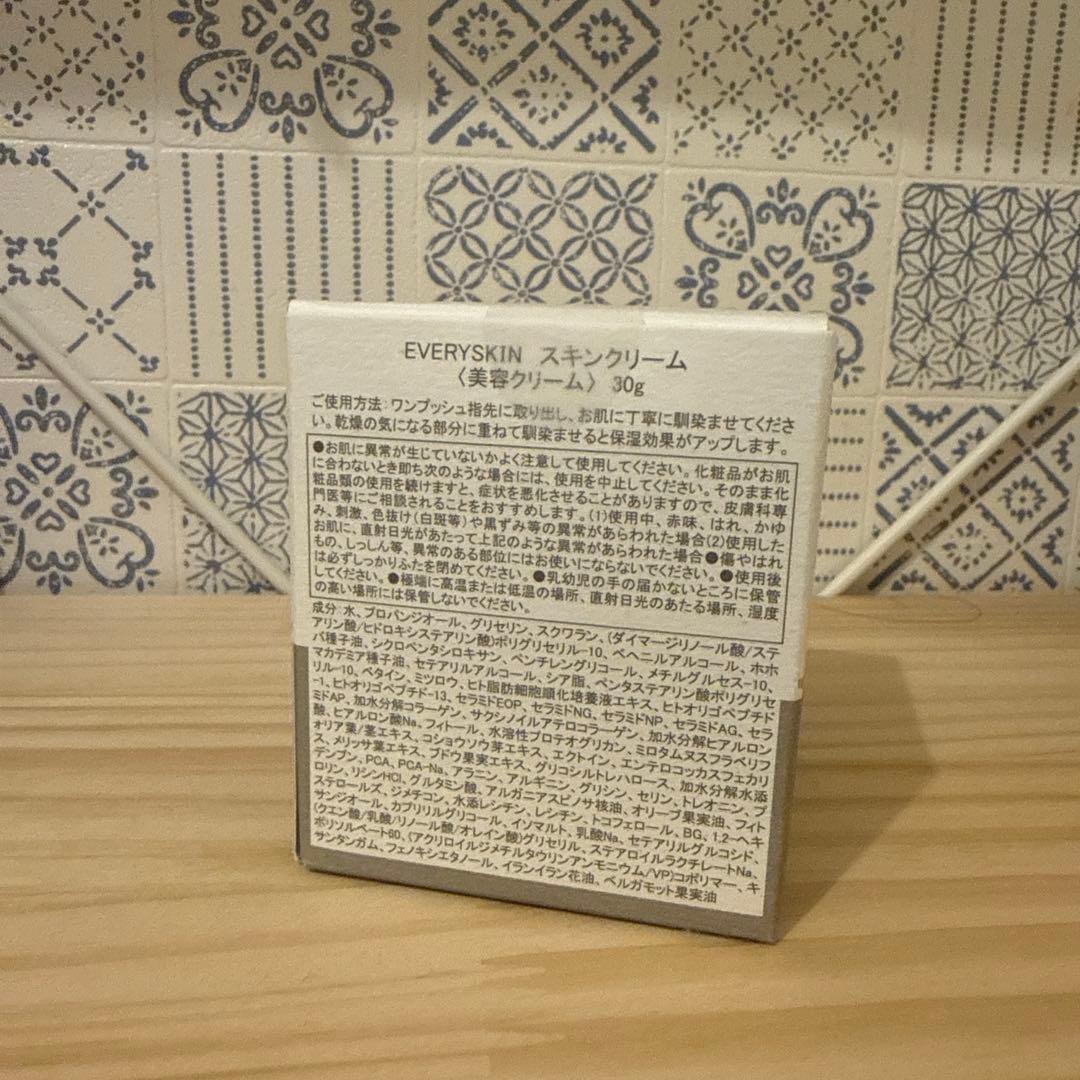 EVERYSKIN スキンクリーム
〈美容クリーム〉 30g
ご使用方法:ワンプッシュ指先に取り出し、お肌に丁寧に馴染ませてくださ
い。乾燥の気になる部分に重ねて馴染ませると保湿効果がアップします。
●お肌に異常が生じていないかよく注意して使用してください。化粧品がお肌
に合わないとき即ち次のような場合には、使用を中止してください。そのまま化
粧品類の使用を続けますと、症状を悪化させることがありますので、皮膚科専
門医等にご相談されることをおすすめします。(1)使用中、赤味、はれ、かゆ
み、刺激、色抜け(白斑等)や黒ずみ等の異常があらわれた場合(2)使用した
お肌に、直射日光があたって上記のような異常があらわれた場合●傷やはれ
もの、しっしん等、異常のある部位にはお使いにならないでください。●使用後
は必ずしっかりふたを閉めてください。●乳幼児の手の届かないところに保管
してください。●極端に高温または低温の場所、直射日光のあたる場所、湿度
の高い場所には保管しないでください。
成分:水、プロパンジオール、グリセリン、スクワラン、(ダイマージリノール酸/ステ
アリン酸/ヒドロキシステアリン酸)ポリグリセリル-10、ベヘニルアルコール、ホホ
バ種子油、シクロペンタシロキサン、ペンチレングリコール、メチルグルセス-10、
マカデミア種子油、セテアリルアルコール、シア脂、ペンタステアリン酸ポリグリセ
リル-10、ベタイン、ミツロウ、ヒト脂肪細胞順化培養液エキス、ヒトオリゴペプチド
-1、ヒトオリゴペプチド-13、セラミドEOP、セラミドNG、セラミドNP、セラミドAG、セラ
ミドAP、加水分解コラーゲン、サクシノイルアテロコラーゲン、加水分解ヒアルロン
酸、ヒアルロン酸Na、フィトール、水溶性プロテオグリカン、ミロタムヌスフラベリフ
オリア葉/茎エキス、コショウソウ芽エキス、エクトイン、エンテロコッカスフェカリ
ス、メリッサ葉エキス、ブドウ果実エキス、グリコシルトレハロース、加水分解水添
デンプン、PCA、PCA-Na、アラニン、アルギニン、グリシン、セリン、トレオニン、プ
ロリン、リシンHCl、グルタミン酸、アルガニアスピノサ核油、オリーブ果実油、フィト
ステロールズ、ジメチコン、水添レシチン、レシチン、トコフェロール、BG、1,2-ヘキ
サンジオール、カプリリルグリコール、イソマルト、乳酸Na、セテアリルグルコシド、
(クエン酸/乳酸/リノール酸/オレイン酸)グリセリル、ステアロイルラクチレートNa、
ポリソルベート60、(アクリロイルジメチルタウリンアンモニウム/VP)コポリマー、キ
サンタンガム、フェノキシエタノール、イランイラン花油、ベルガモット果実油